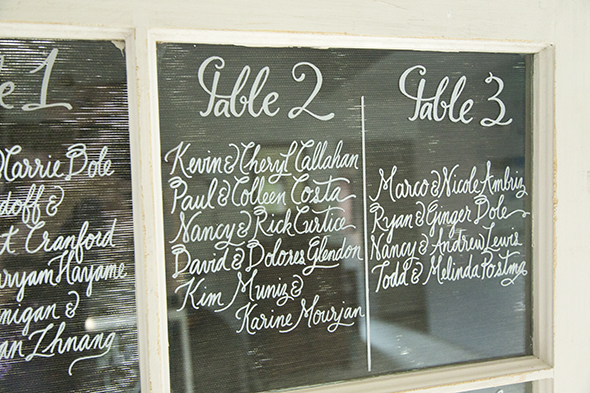 e 1
Carrie Dole
doff &
t Cranford
ryam Hayame
nigan &
an Zhnang
Table 2
Kevin & Cheryl Callahan
Paul & Colleen Costa
Nancy & Rick Curtice
David & Dolores Glendon
Kim Muniz &
Karine Mourjan
Table 3
Marco & Nicole Ambriz
Ryan & Ginger Dole
Nancy & Andrew Lewis
Todd & Melinda Postma